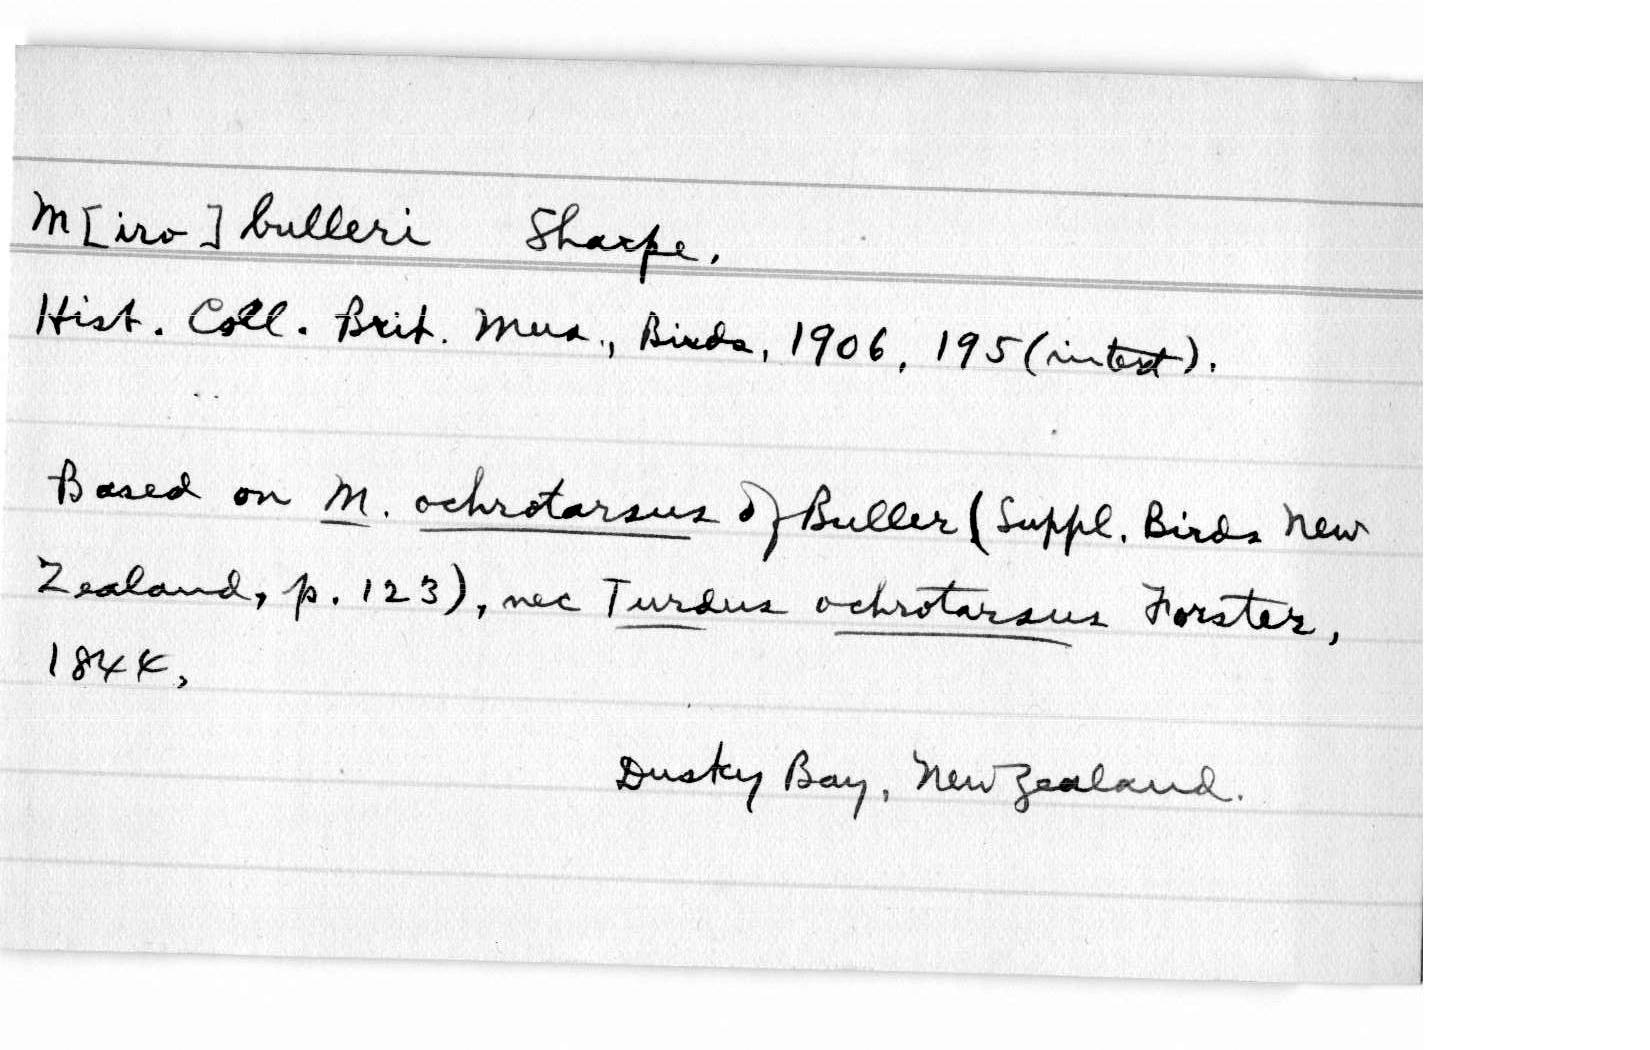 M[iro] bulleri Sharpe.
Hist. Coll. Brit. Mus., Birds, 1906, 195 (in text).
Based on M. ochrotarsus of Buller (Suppl. Birds New
Zealand, p. 123), nec Turdus ochrotarsus Forster,
1844,
Dusky Bay, New Zealand.